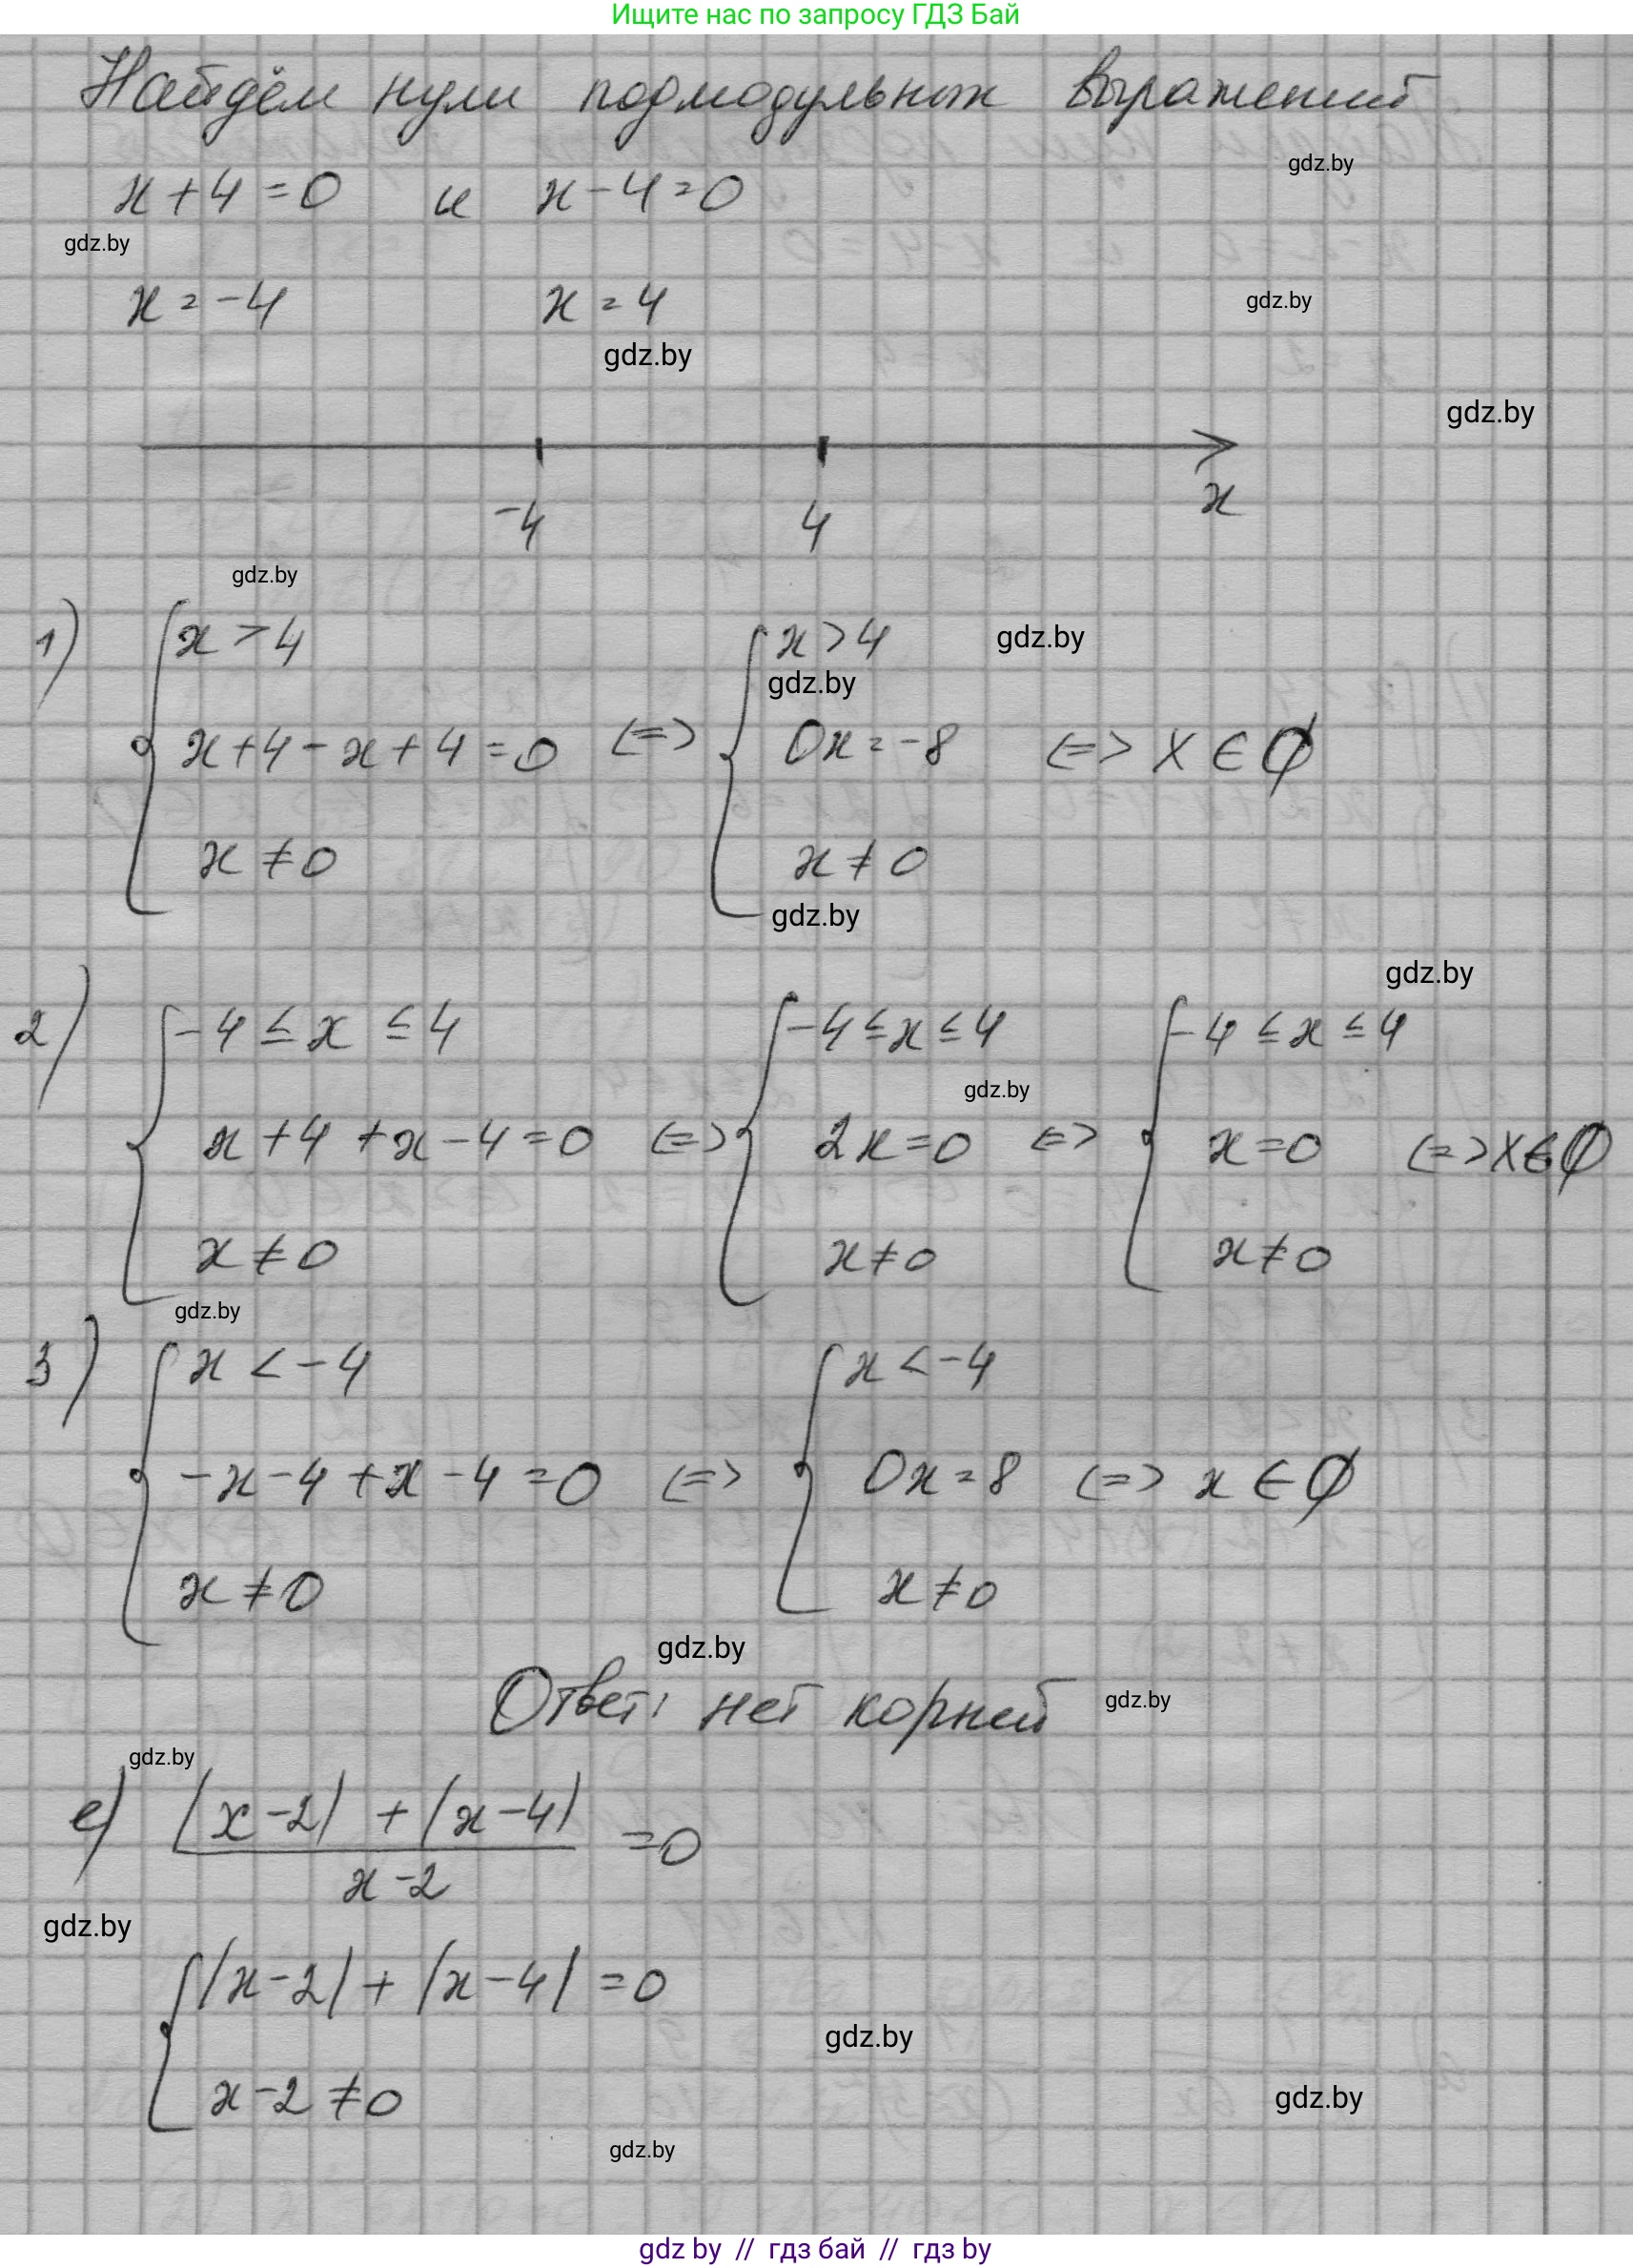 Ищите нас по запросу ГДЗ Бай
Найдём нули подмодульных выражений
gdz.by
x+4=0 и x-4=0
gdz.by
x=-4 x=4
gdz.by
gdz.by
gdz.by
-4 4 x
gdz.by
1) x>4 x>4
gdz.by
gdz.by
x+4-x+4=0 <=> 0x=-8 <=> x∈∅
x≠0 x≠0
gdz.by
gdz.by
2) -4≤x≤4 -4≤x≤4 -4≤x≤4
gdz.by
x+4+x-4=0 <=> 2x=0 <=> x=0 <=> x∈∅
x≠0 x≠0 x≠0
gdz.by
3) x<-4 x<-4
-x-4+x-4=0 <=> 0x=8 <=> x∈∅
x≠0 x≠0
gdz.by
Ответ: нет корней
gdz.by
gdz.by
е) |x-2|+|x-4|
=0
x-2
gdz.by
|x-2|+|x-4|=0
gdz.by
x-2≠0
gdz.by
gdz.by
gdz by // гдз бай // гдз by